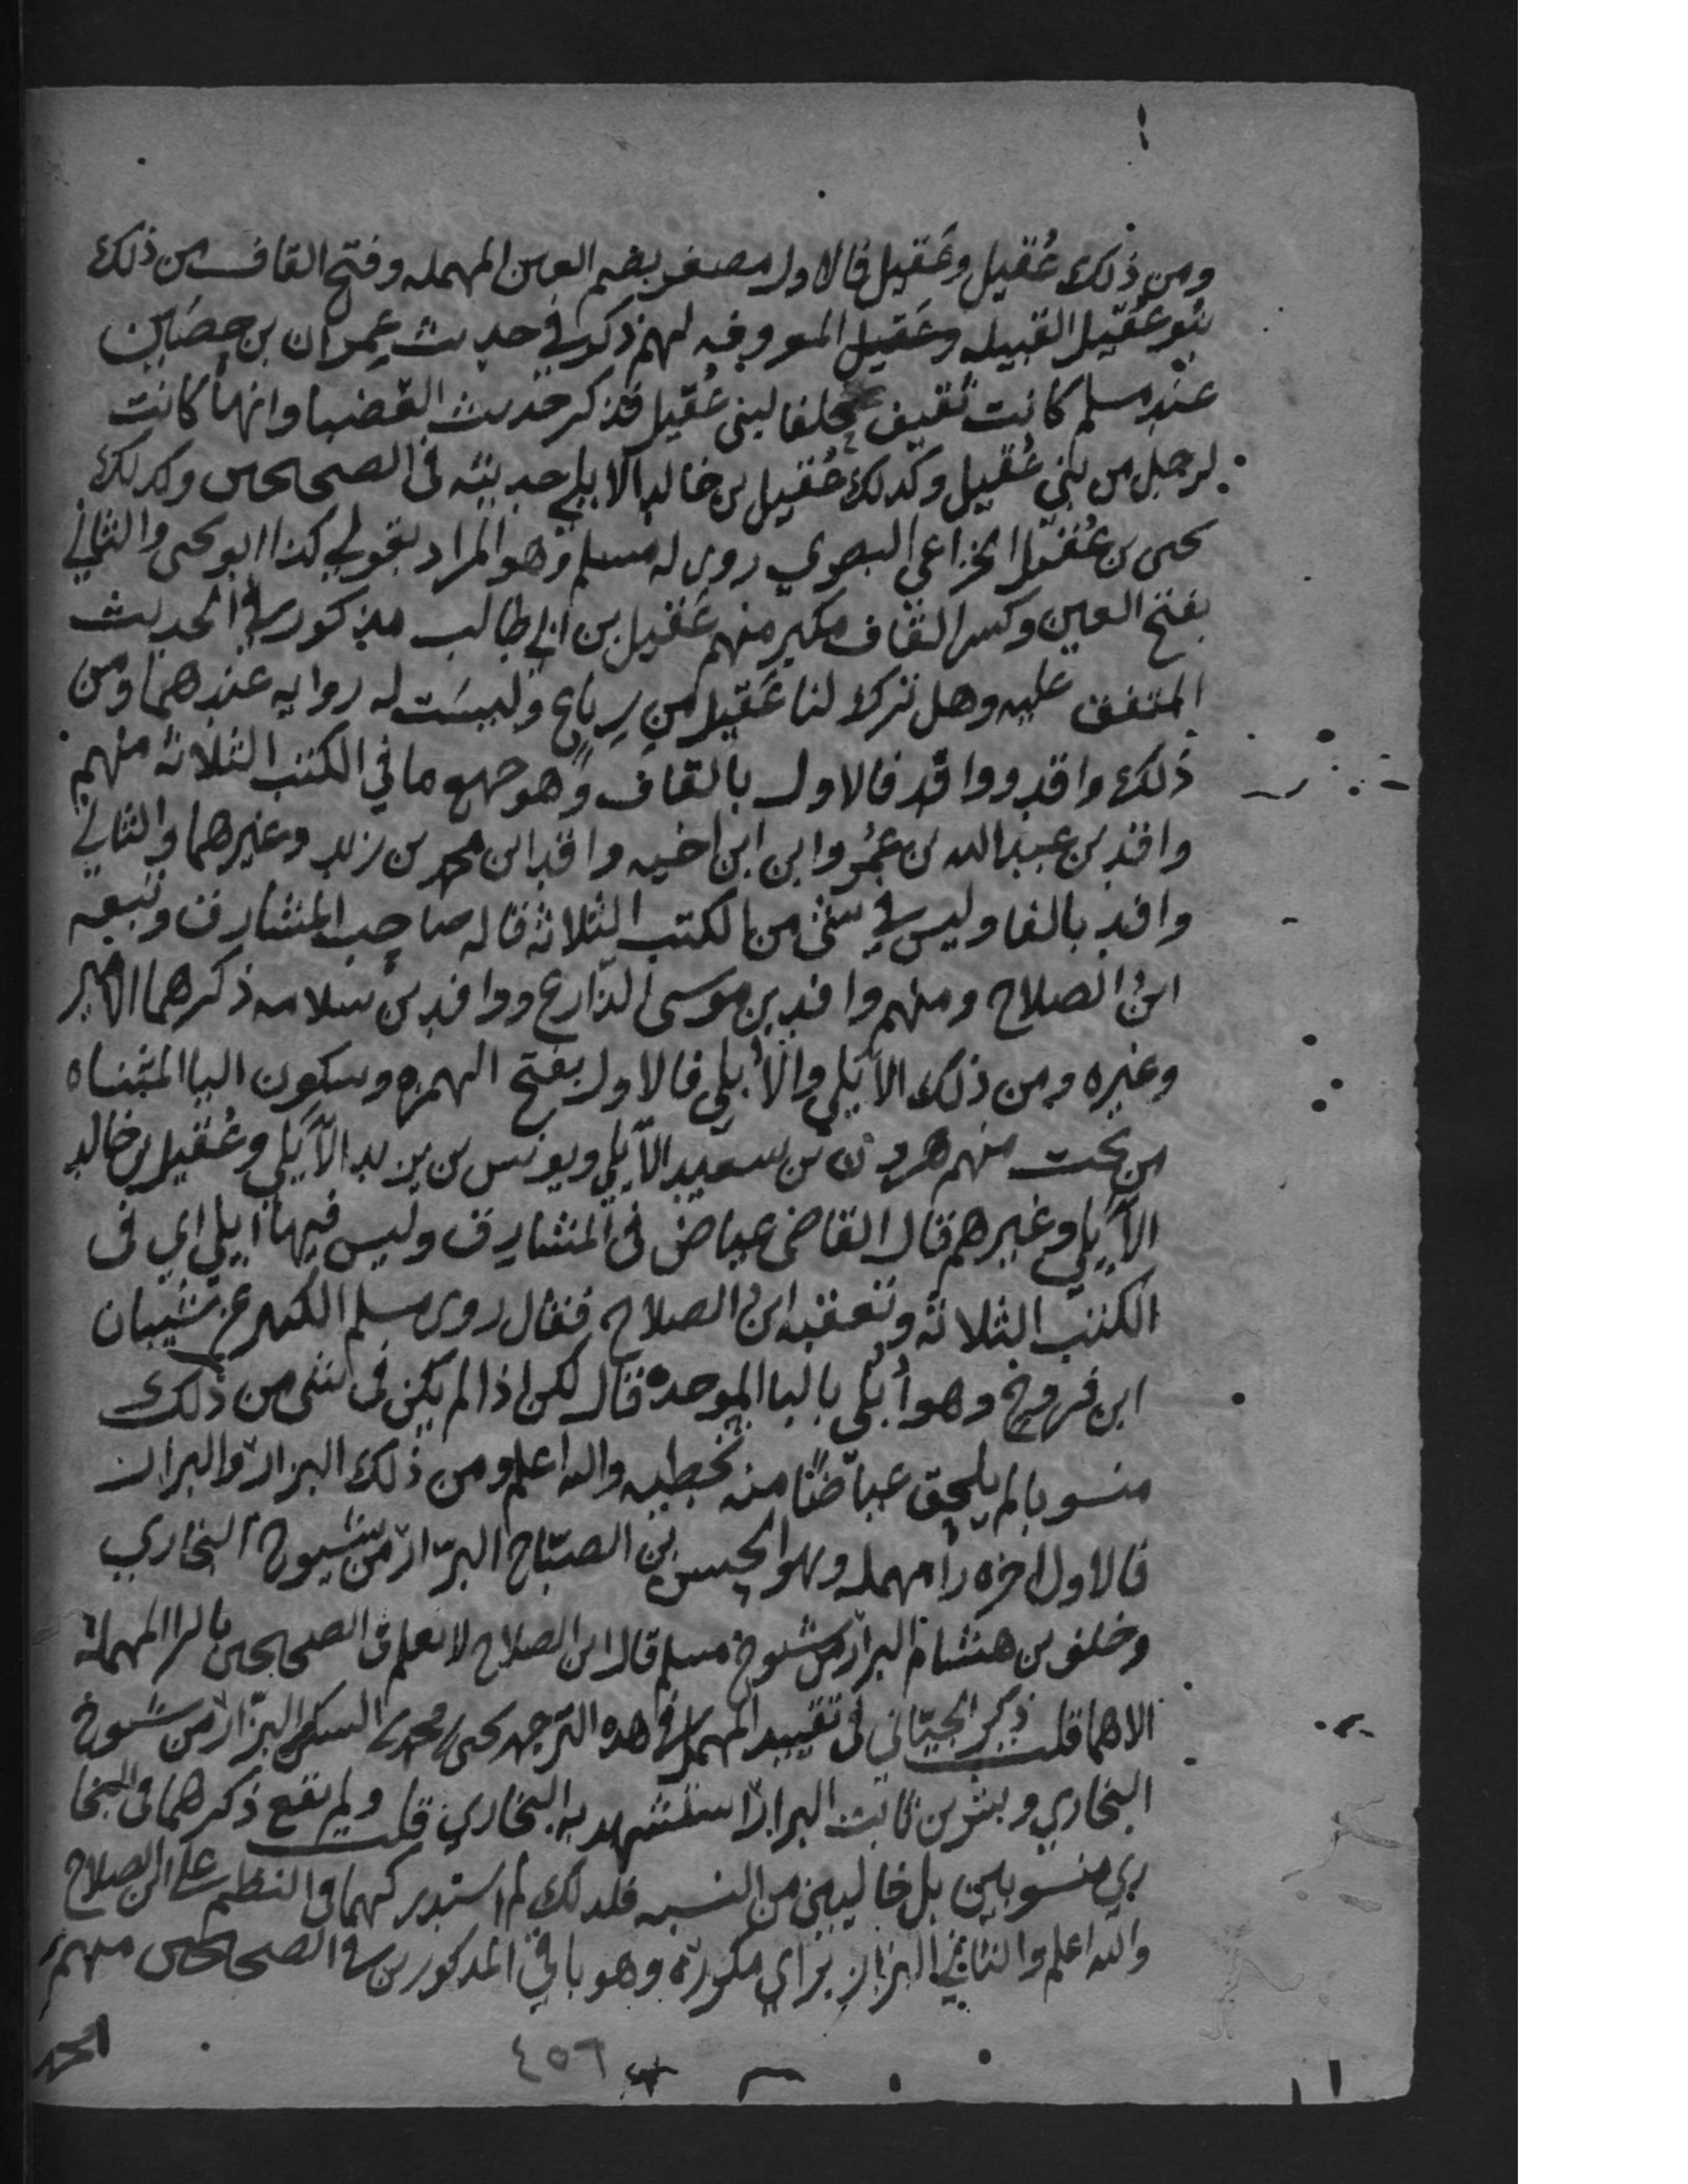 ومن ذلك عُقيل وعَقيل فالاول مصغر بضم العين المهمله وفتح القاف من ذلك
بنو عُقَيل القبيله وعَقيل المعروفه لهم ذكر في حديث عِمران بن حصَين
عند مسلم كانت ثقيف حلفا لبنى عُقَيل فذكر حديث العَضبا وانها كانت
لرجل من بَنى عُقيل وكذلك عُقيل بن خالد الايلي حديثه فى الصحيحين وكذلك
يحيى بن عُقَيل الخزاعي البصري روى له مسلم وهو المراد بقولي كذا ابو يحيى والثاني
بفتح العين وكسر القاف مكبر منهم عَقيل بن ابي طالب مذكور في الحديث
المتفق عليه وهل ترك لنا عَقيل من رِباع وليسَت له روايه عندهما ومن
ذلك واقد ووافد فالاول بالقاف وهو جميع ما في الكتب الثلاثة منهم
واقد بن عبد الله بن عُمر وابن ابن اخيه واقد ابن محمد بن زيد وغيرهما والثاني
وافد بالفا وليس في شئ من الكتب الثلاثة قاله صاحب المشارق وتبعه
ابنُ الصلاح ومنهم وافد بن موسى الذّارع ووافد بن سلامه ذكرهما الامير
وغيره ومن ذلك الاَيلي والأُبلي فالاول بفتح الهمزه وسكون اليا المثناه
من تحت منهم هرون بن سعيد الاَيلي ويونس بن يزيد الاَيلي وعُقيل بن خالد
الاَيلي وغيرهم قال القاضى عياض فى المشارق وليس فيها أُبلي اي فى
الكتب الثلاثة وتعقبه ابن الصلاح فقال روى مسلم الكثير عن شَيبان
ابن فروخ وهو أُبلى بالبا الموحده قال لكن اذا لم يكن فى شئ من ذلك
منسوبا لم يلحق عياضًا منه تخطيه والله اعلم ومن ذلك البزار والبزاز
فالاول اخره رأ مهمله وهو الحسن بن الصبّاح البزّار من شيوخ البخاري
وخلف بن هشام البزار من شيوخ مسلم قال ابن الصلاح لا نعلم فى الصحيحين بالرا المهملة
الا هما قلت ذكر الجيّاني فى تقييد المهمل فى هذه الترجمه يحيى بن محمد بن السكن البزّار من شيوخ
البخاري وبشر بن ثابت البزار استشهد به البخاري قلت ولم يقع ذكرهما فى البخا
ري منسوبين بل خاليين من النسبه فلذلك لم استدركهما فى النظم على ابن الصلاح
والله اعلم والثاني البزاز بزاي مكررة وهو باقي المذكورين فى الصحيحين منهم
محمد
٤٥٦